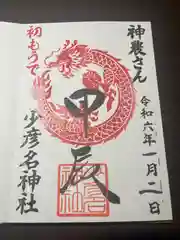 神農さん
令和六年一月二日
甲辰
初もうで
少彦名神社